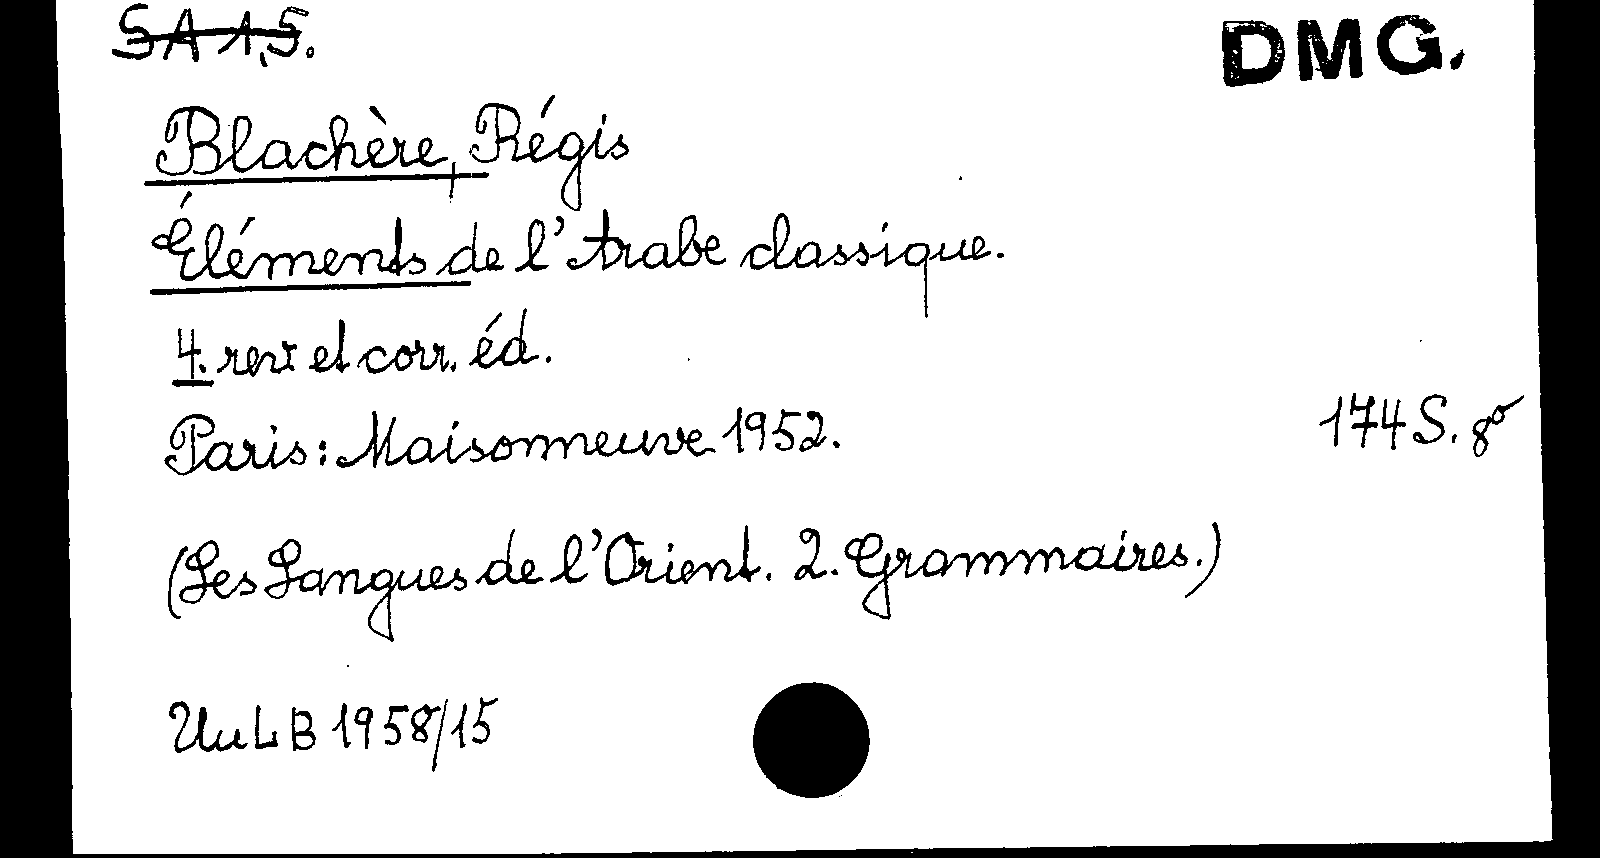 SA 1,5.
DMG.
Blachère, Régis
Éléments de l'Arabe classique.
4. rev. et corr. éd.
Paris: Maisonneuve 1952.
174 S. 8°
(Les Langues de l'Orient. 2. Grammaires.)
UuLB 1958/15